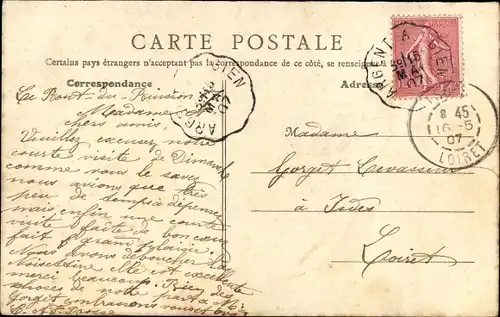 CARTE POSTALE
Certains pays étrangers n'acceptant pas la correspondance de ce côté, se renseigner
Correspondance
Adresse
ARGENT A GIEN
15 MAI 07
Le Pont-du-Buisson
Madame
chers amis,
Veuillez excusez notre
courte visite de Dimanche
comme vous le savez
nous avions que très
peu de temps à dépenser
mais enfin une courte
visite faite de bon cœur
fait grand plaisir.
Nous avons déboucher la
Noisettine elle est excellente
merci beaucoup. Bien des
choses de notre part à Mr
Gorget
Madame
Gorget Levasseur
à Isdes
Loiret
8 45
16-5
07
LOIRET